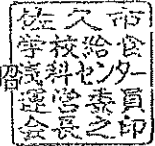 佐久市
学校給食
浅科センター
運営委員
会長之印